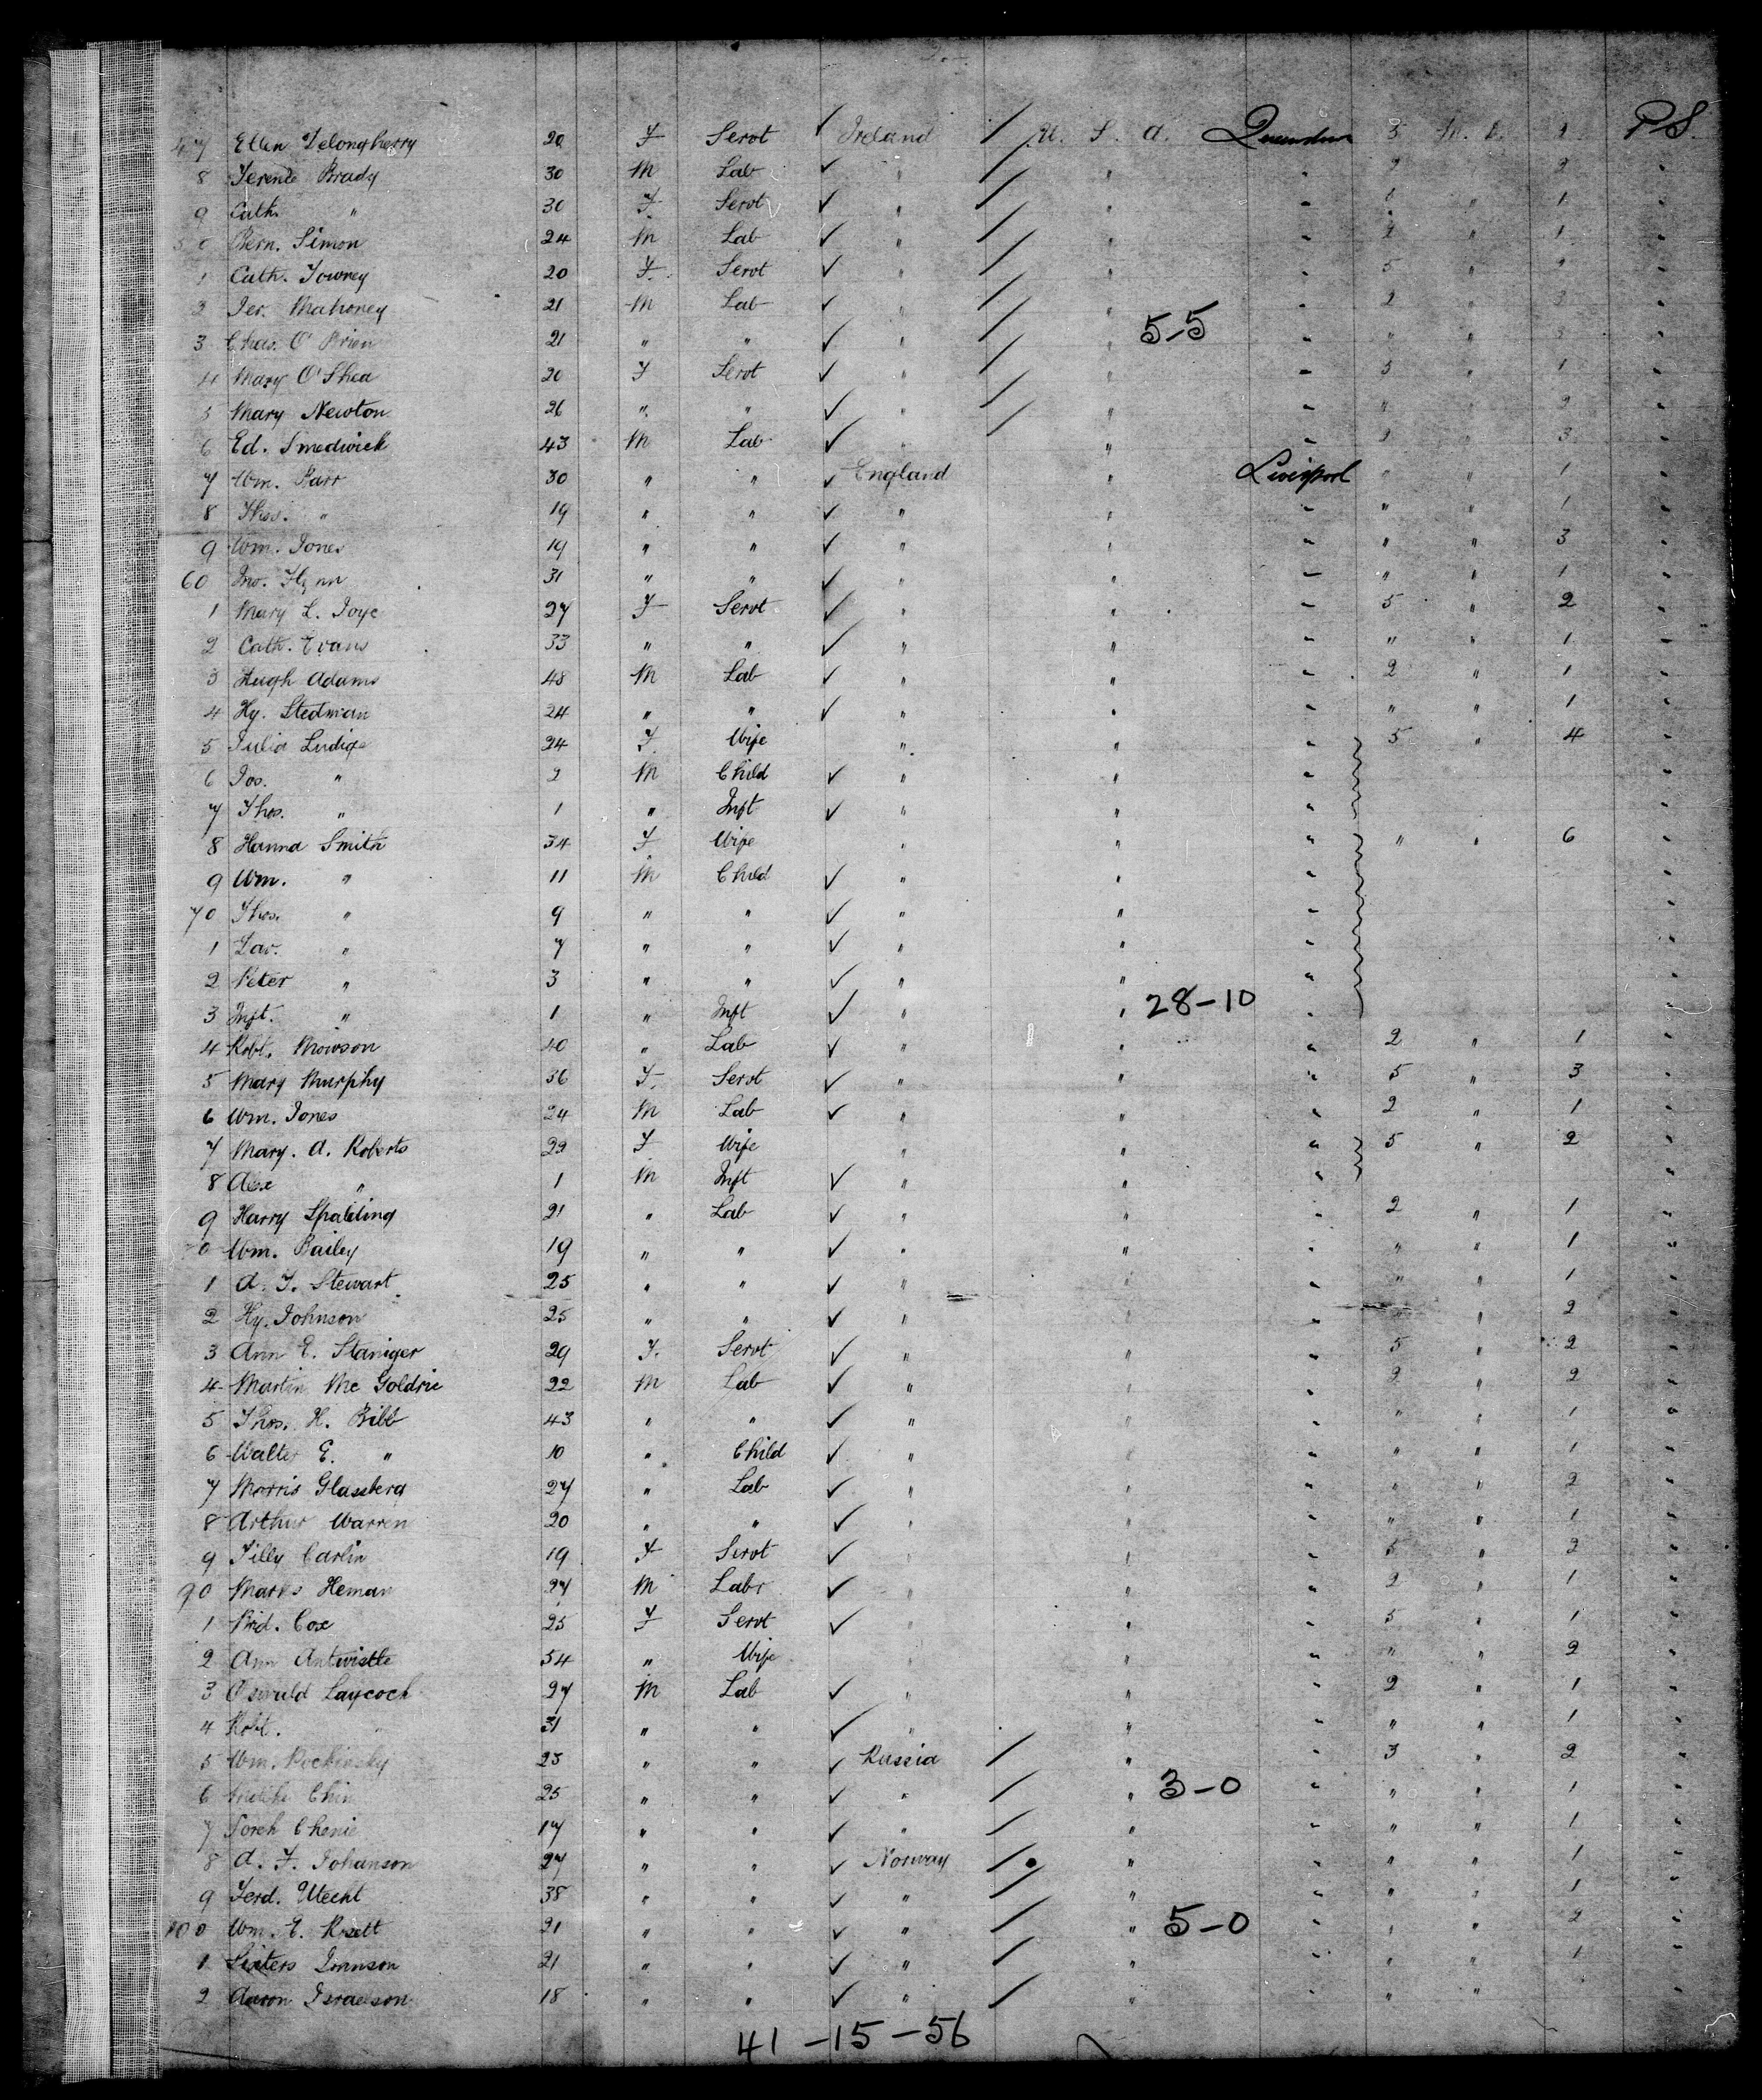 47 Ellen Delongherry 20 F Servt ✓ Ireland / U. S. A. Queenstown 5 1 PS.
8 Terence Brady 30 M Lab ✓ " / " " 2 " 2 "
9 Cath. " 30 F Servt ✓ " / " " 5 " 1 "
50 Bern. Simon 24 M Lab ✓ " / " " 2 " 1 "
1 Cath. Towney 20 F Servt ✓ " / " " 5 " 2 "
2 Jer. Mahoney 21 M Lab ✓ " / " " 2 " "
3 Chas. O'Brien 21 " " ✓ " / " 5-5 " " " "
4 Mary O'Shea 20 F Servt ✓ " / " " 5 " 1 "
5 Mary Newton 26 " " ✓ " / " " " " 2 "
6 Ed. Smedwick 43 M Lab ✓ " " " 2 " 3 "
7 Wm. Barr 30 " " ✓ England " Liverpool " " 1 "
8 Thos. " 19 " " ✓ " " " " " 1 "
9 Wm. Jones 19 " " ✓ " " " " " 3 "
60 Jno. Flynn 31 " " ✓ " " " " " 1 "
1 Mary L. Joyc 27 F Servt ✓ " " " 5 " 2 "
2 Cath. Evans 33 " " ✓ " " " " " 1 "
3 Hugh Adams 48 M Lab ✓ " " " 2 " 1 "
4 Hy. Stedman 24 " " ✓ " " " " " 1 "
5 Julia Ludige 24 F Wife " " " 5 " 4 "
6 Jos. " 2 M Child ✓ " " " "
7 Thos. " 1 " Inft ✓ " " " "
8 Hanna Smith 34 F Wife " " " " " 6 "
9 Wm. " 11 M Child ✓ " " " "
70 Thos. " 9 " " ✓ " " " "
1 Lar. " 7 " " ✓ " " " "
2 Peter " 3 " " ✓ " " " "
3 Inft. " 1 " Inft ✓ " " 28-10 " "
4 Robt. Mowson 40 " Lab ✓ " " " 2 " 1 "
5 Mary Murphy 36 F. Servt ✓ " " " 5 " 3 "
6 Wm. Jones 24 M Lab ✓ " " " 2 " 1 "
7 Mary. A. Roberts 29 F Wife " " " 5 " 2 "
8 Alex " 1 M Inft ✓ " " " "
9 Harry Spalding 21 " Lab ✓ " " " 2 " 1 "
0 Wm. Bailey 19 " " ✓ " " " " " 1 "
1 A. T. Stewart 25 " " ✓ " " " " " 1 "
2 Hy. Johnson 25 " " ✓ " " " " " 2 "
3 Ann E. Staniger 29 F. Servt ✓ " " " 5 " 2 "
4 Martin Mc Goldric 22 M Lab ✓ " " " 2 " 2 "
5 Thos. H. Bibb 43 " " ✓ " " " " " 1 "
6 Walter E. " 10 " Child ✓ " " " " " 1 "
7 Morris Glassberg 27 " Lab ✓ " " " " " 2 "
8 Arthur Warren 20 " " ✓ " " " " " 1 "
9 Tilly Carlin 19 F Servt ✓ " " " 5 " 2 "
90 Marks Heman 27 M Labr ✓ " " " 2 " 1 "
1 Brid. Cox 25 F Servt ✓ " " " 5 " 1 "
2 Ann Antwistle 54 " Wife " " " " " 2 "
3 Oswald Laycock 27 M Lab ✓ " " " 2 " 1 "
4 Robt. " 31 " " ✓ " " " " " 1 "
5 Wm. 23 " " ✓ Russia / " " 3 " 2 "
6 Chin 25 " " ✓ " / " 3-0 " " " 1 "
7 Sorch Chenie 17 " " ✓ " / " " " " 1 "
8 A. F. Johanson 27 " " ✓ Norway / " " " " 1 "
9 Ferd. Utecht 38 " " ✓ " / " " " " 1 "
100 Wm. E. 21 " " ✓ " / " 5-0 " " " 2 "
1 Johnson 21 " " ✓ " / " " " " 1 "
2 Aaron Israelson 18 " " ✓ " / " " " " "
41-15-56